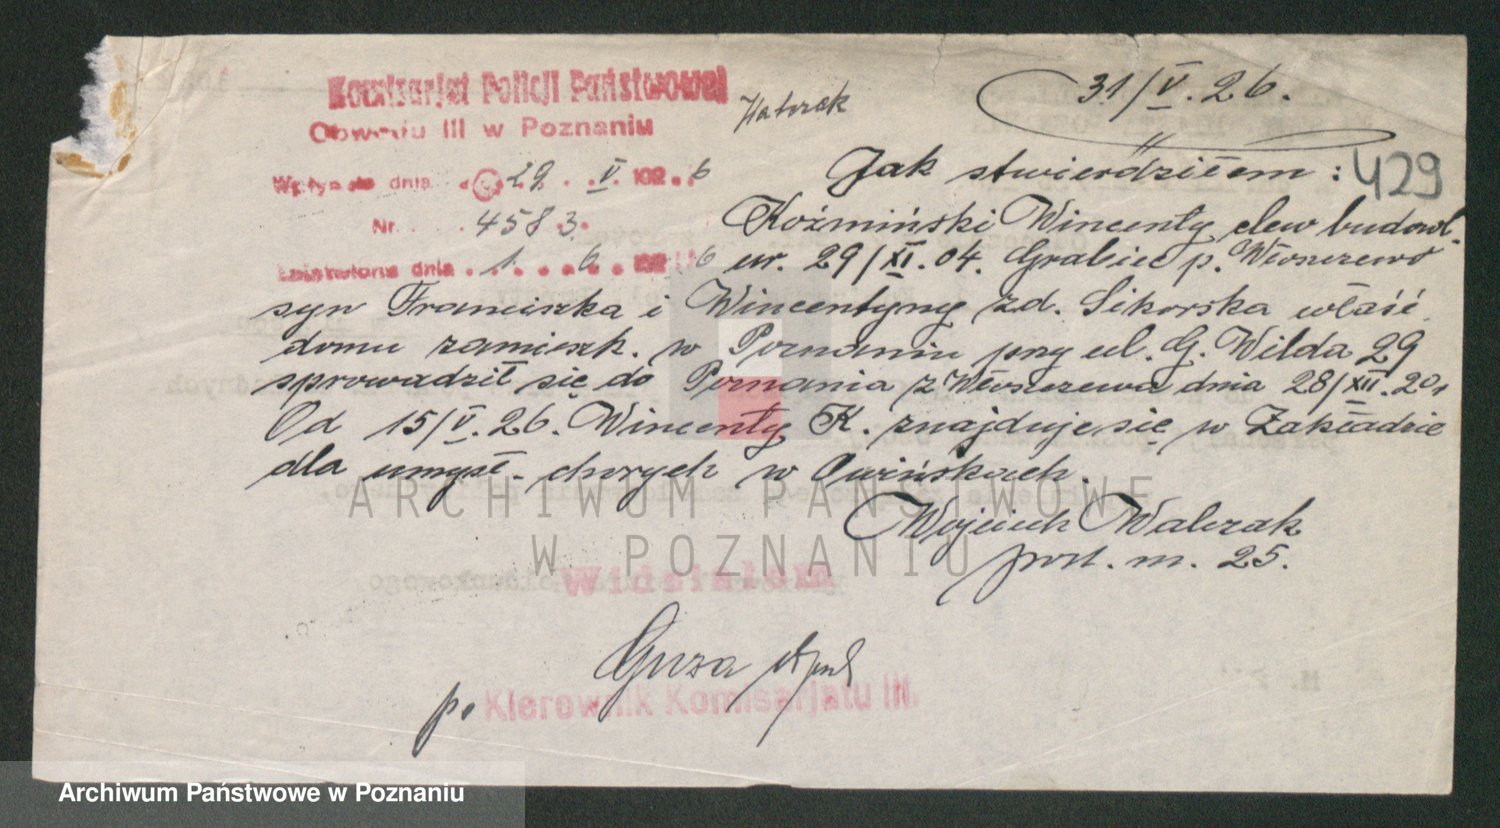 Komisarjat Policji Państwowej
Obwodu III w Poznaniu
Wpłynęło dnia 29. V. 1926
Nr. 4583.
Załatwiono dnia 1. 6. 192 6
31/V. 26.
429
Jak stwierdziłem:
Koźmiński Wincenty elew budowl.
ur. 29/XI. 04. Grabiec p.
syn Franciszka i Wincentyny zd. Sikorska właść.
domu zamieszk. w Poznaniu przy ul. G. Wilda 29
sprowadził się do Poznania z dnia 28/XII. 20.
Od 15/V. 26. Wincenty K. znajduje się w Zakładzie
dla umysł. chorych w Owińskach.
Wojciech Walczak
post. m. 25.
Widziałem
Guza
po Kierownik Komisarjatu III.
ARCHIWUM PAŃSTWOWE
W POZNANIU
Archiwum Państwowe w Poznaniu